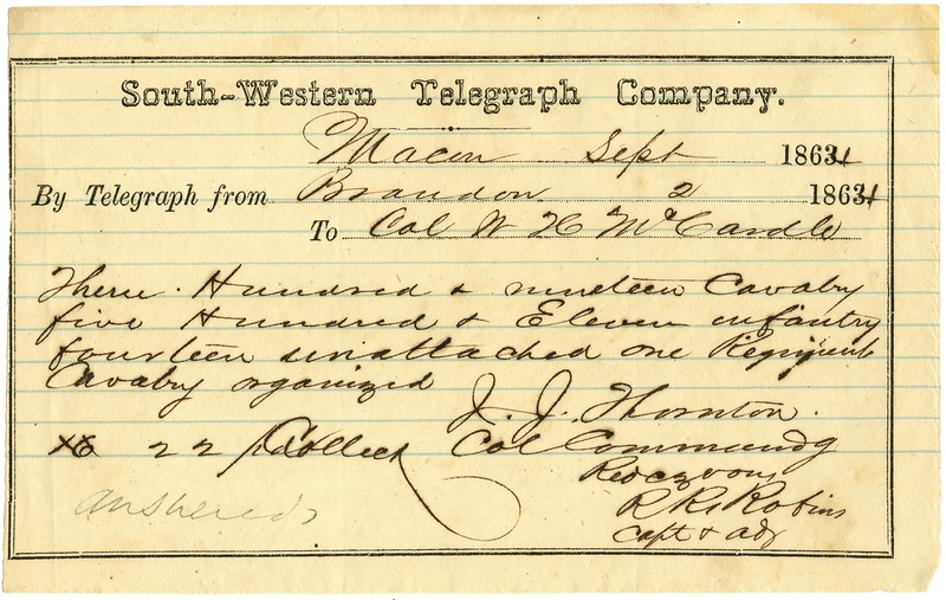 South-Western Telegraph Company.
Macon Sept 1864
By Telegraph from Brandon 2 1864
To Col W H McCardle
Three Hundred & nineteen Cavalry
five Hundred & Eleven infantry
fourteen unattached one Regiment
Cavalry organized
J. J. Thornton.
22 / Collect Col Commandg
Redezvous
R R Robins
Capt & adj
answered